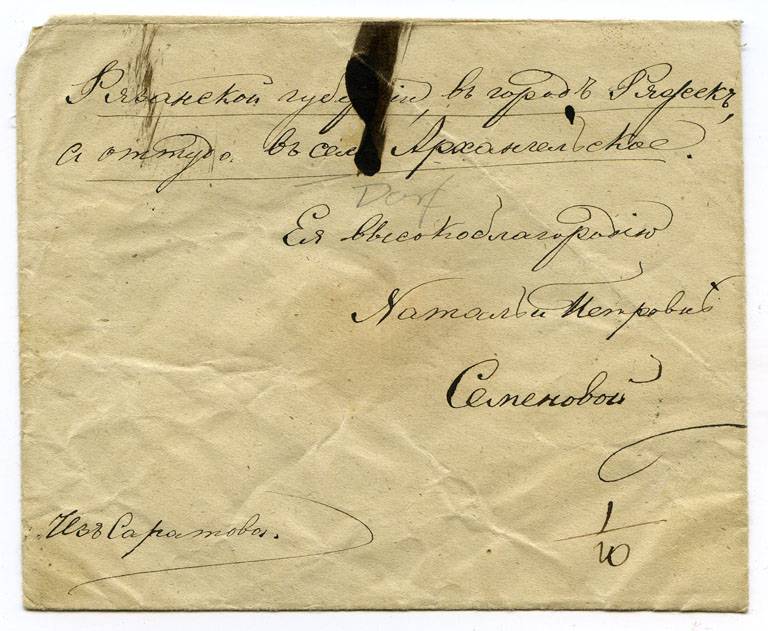 Рязанской губерніи, въ городъ Ряжскъ,
а оттуда въ село Архангельское.
Dorf
Ея высокоблагородію
Натальи Петровнѣ
Семеновой
Изъ Саратова.
1
10